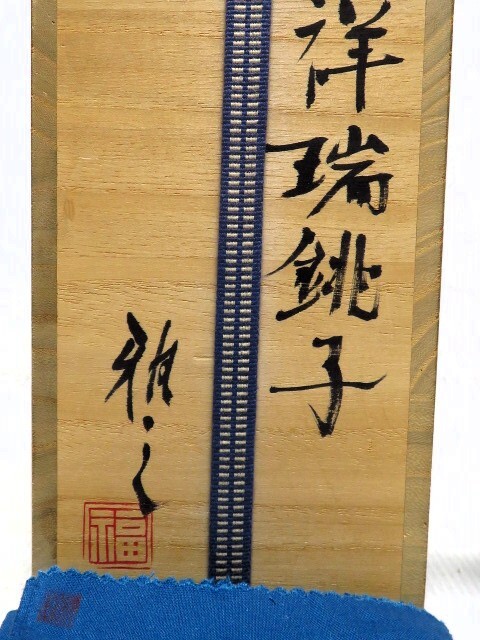 祥瑞銚子
雅之
福